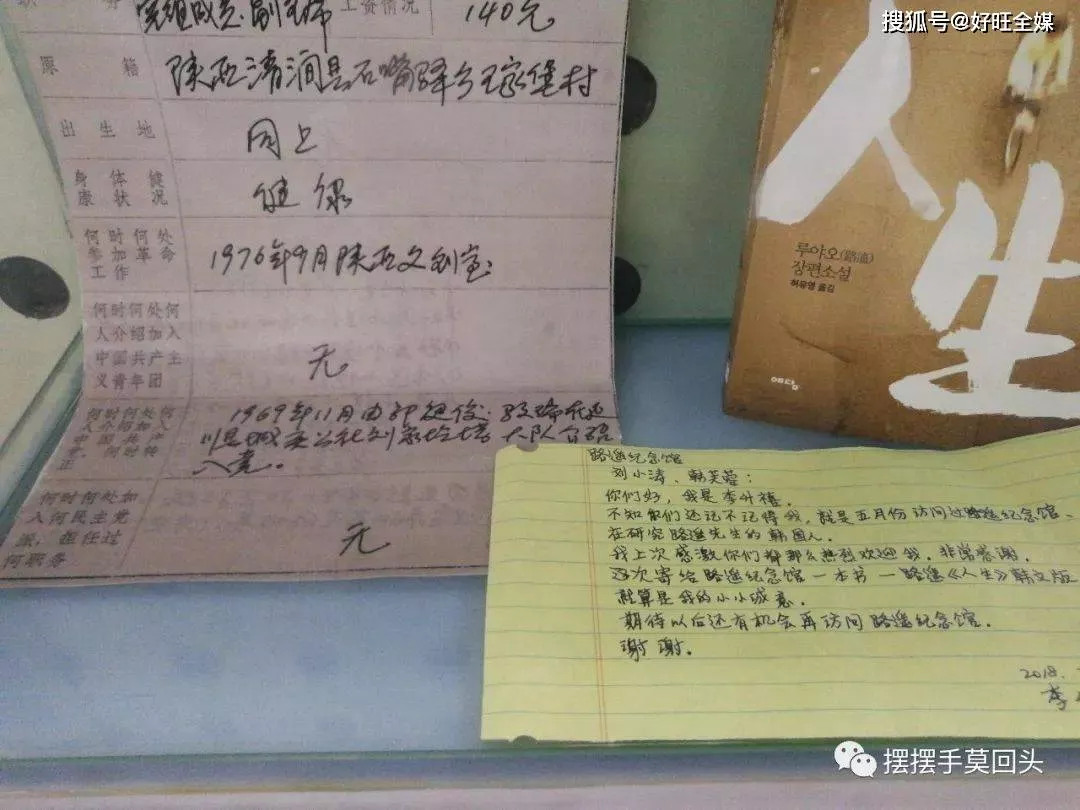 搜狐号@好旺全媒
职 务
党组成员、副主席
工资情况
140元
原 籍
陕西清涧县石嘴驿乡王家堡村
出 生 地
同上
身 体 健
康 状 况
健康
何 时 何 处
参 加 革 命
工 作
1976年9月陕西文创室
何 时 何 处 何
人 介 绍 加 入
中 国 共 产 主
义 青 年 团
无
何 时 何 处 何
人 介 绍 加 入
中 国 共 产
党，何 时 转
正
1969年11月由
川县城关公社刘家圪塔大队介绍
入党。
何 时 何 处 加
入 何 民 主 党
派，担 任 过
何 职 务
无
人
生
루야오(路遙)
장편소설
허유영 옮김
路遥纪念馆
刘小涛、韩芙蓉：
你们好，我是李升禧。
不知你们还记不记得我，就是五月份访问过路遥纪念馆、
在研究路遥先生的韩国人。
我上次感激你们都那么热烈欢迎我。非常感谢。
这次寄给路遥纪念馆一本书－路遥《人生》韩文版
就算是我的小小诚意。
期待以后还有机会再访问路遥纪念馆。
谢谢。
2018.
李
摆摆手莫回头